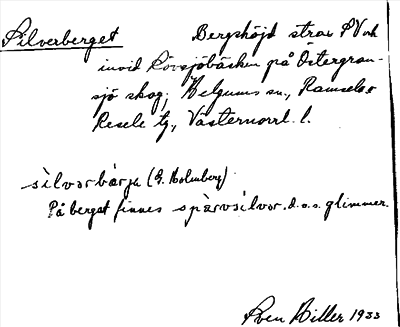 Silverberget Bergshöjd strax SV och
invid Rövsjöbäcken på Östergran-
sjö skog, Helgums sn., Ramsele o
Resele tg., Västernorrl. l.
silvərbärjə (E. Holmberg)
På berget finnes spårvsilvər. d.ä.s. glimmer.
Sven Hiller 1933